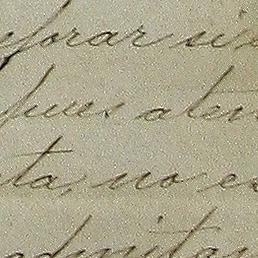 forar si
pues aten
ta, no es
admitan